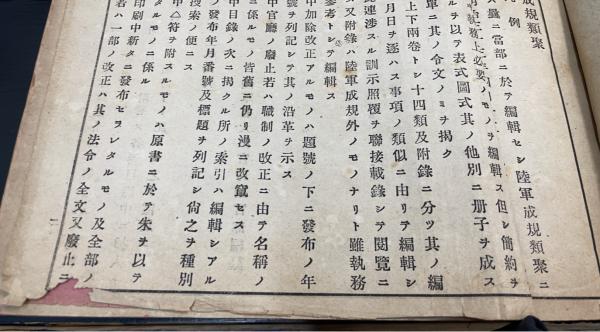 成規類聚
凡例
盬當部ニ於テ編輯セシ陸軍成規類聚ニ
務上必要ノモノヲ編輯ス但シ簡約ヲ
ルヲ以テ表式圖式其ノ他別ニ册子ヲ成ス
單ニ其ノ令文ノミヲ掲ク
上下兩卷トシ十四類及附錄ニ分ツ其ノ編
月日ヲ逐ハス事項ノ類似ニ由リテ編輯シ
連涉スル訓示照覆ヲ聯接載錄シテ閱覽ニ
又附錄ハ陸軍成規外ノモノナリト雖執務
參考トシテ編輯ス
中加除改正アルモノハ題號ノ下ニ發布ノ年
號ヲ列記シテ其ノ沿革ヲ示ス
中官廳ノ廢止若ハ職制ノ改正ニ由テ名稱ノ
ニ係ルモノハ皆舊ニ仍リ漫ニ改竄セス
中目錄ノ次ニ掲クル所ノ索引ハ編輯シアル
ノ發布年月番號及標題ヲ列記シ尙之ヲ種別
搜索ノ便ニス
中△符ヲ附スルモノハ原書ニ於テ朱ヲ以テ
タルモノニ係ル
印刷中新タニ發布セラレタルモノ及全部ノ
若ハ一部ノ改正ハ其ノ法令ノ全文又廢止ニ
一